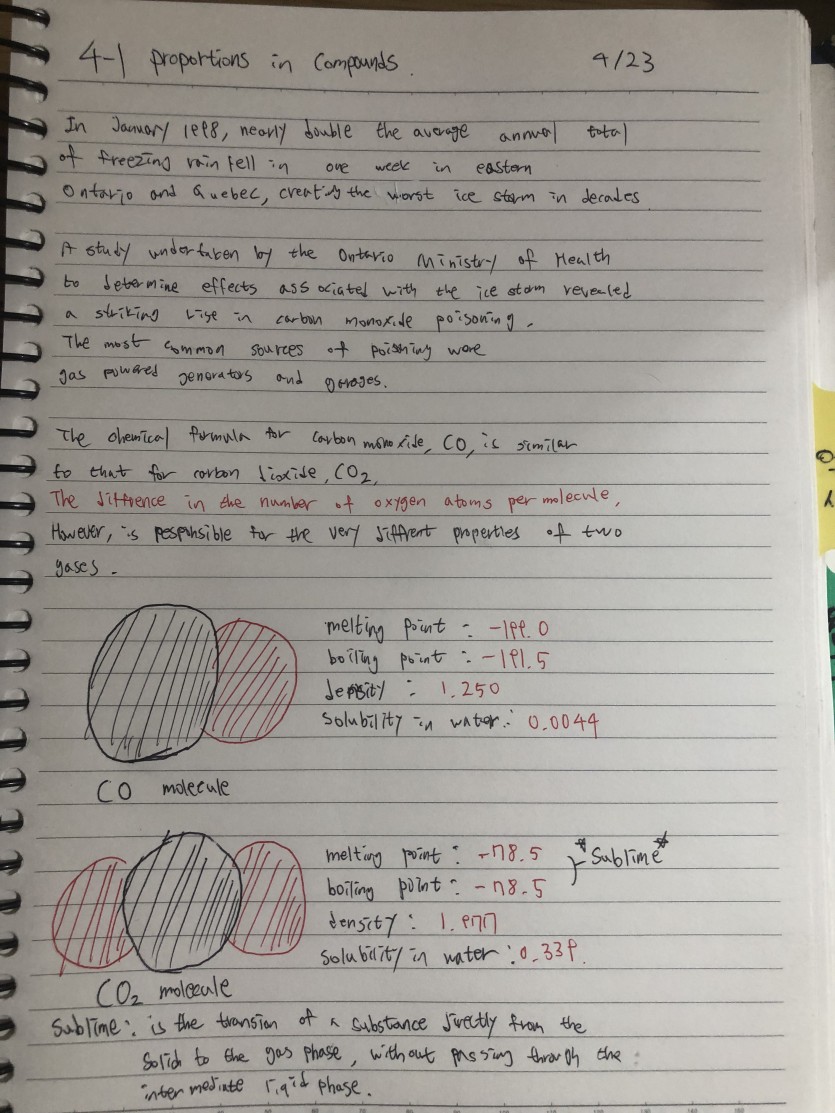 4-1 proportions in Compounds. 4/23
In January 1998, nearly double the average annual total
of freezing rain fell in one week in eastern
Ontario and Quebec, creating the worst ice storm in decades
A study undertaken by the Ontario Ministry of Health
to determine effects associated with the ice storm revealed
a striking rise in carbon monoxide poisoning.
The most common sources of poisoning were
gas powered generators and garages.
The chemical formula for carbon monoxide, CO, is similar
to that for carbon dioxide, CO2,
The diffrence in the number of oxygen atoms per molecule,
However, is pesponsible for the very diffrent properties of two
gases.
melting point : -199.0
boiling point : -191.5
density : 1.250
solubility in water : 0.0044
CO molecule
melting point : -78.5
boiling point : -78.5
*Sublime*
density : 1.977
solubility in water : 0.339.
CO2 molecule
Sublime : is the transion of a substance directly from the
Solid to the gas phase, without passing through the
intermediate liqid phase.